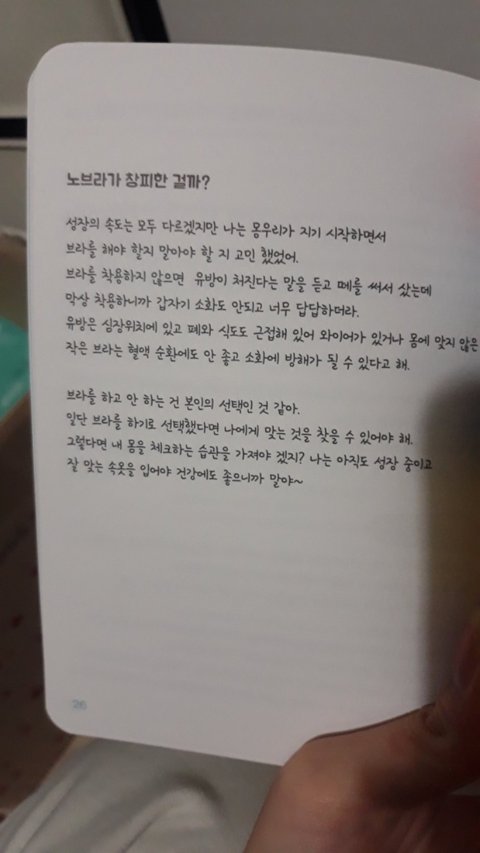 노브라가 창피한 걸까?
성장의 속도는 모두 다르겠지만 나는 몽우리가 지기 시작하면서
브라를 해야 할지 말아야 할 지 고민 했었어.
브라를 착용하지 않으면 유방이 처진다는 말을 듣고 떼를 써서 샀는데
막상 착용하니까 갑자기 소화도 안되고 너무 답답하더라.
유방은 심장위치에 있고 폐와 식도도 근접해 있어 와이어가 있거나 몸에 맞지 않은
작은 브라는 혈액 순환에도 안 좋고 소화에 방해가 될 수 있다고 해.
브라를 하고 안 하는 건 본인의 선택인 것 같아.
일단 브라를 하기로 선택했다면 나에게 맞는 것을 찾을 수 있어야 해.
그렇다면 내 몸을 체크하는 습관을 가져야 겠지? 나는 아직도 성장 중이고
잘 맞는 속옷을 입어야 건강에도 좋으니까 말야~
26